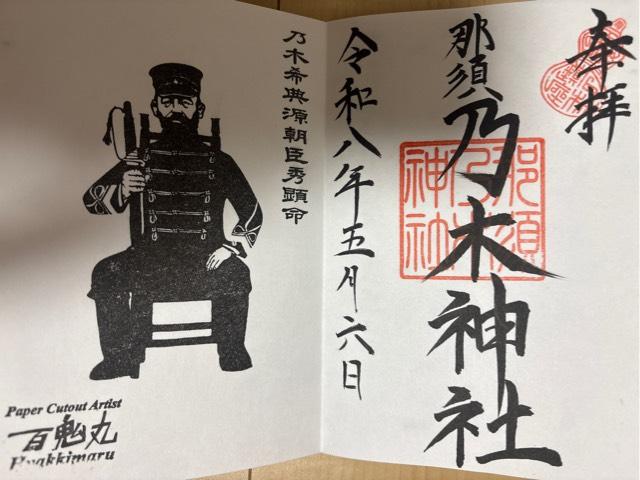 奉拝
那須乃木神社
那須
乃木
神社
令和八年五月六日
乃木希典源朝臣秀顕命
Paper Cutout Artist
百鬼丸
Hyakkimaru